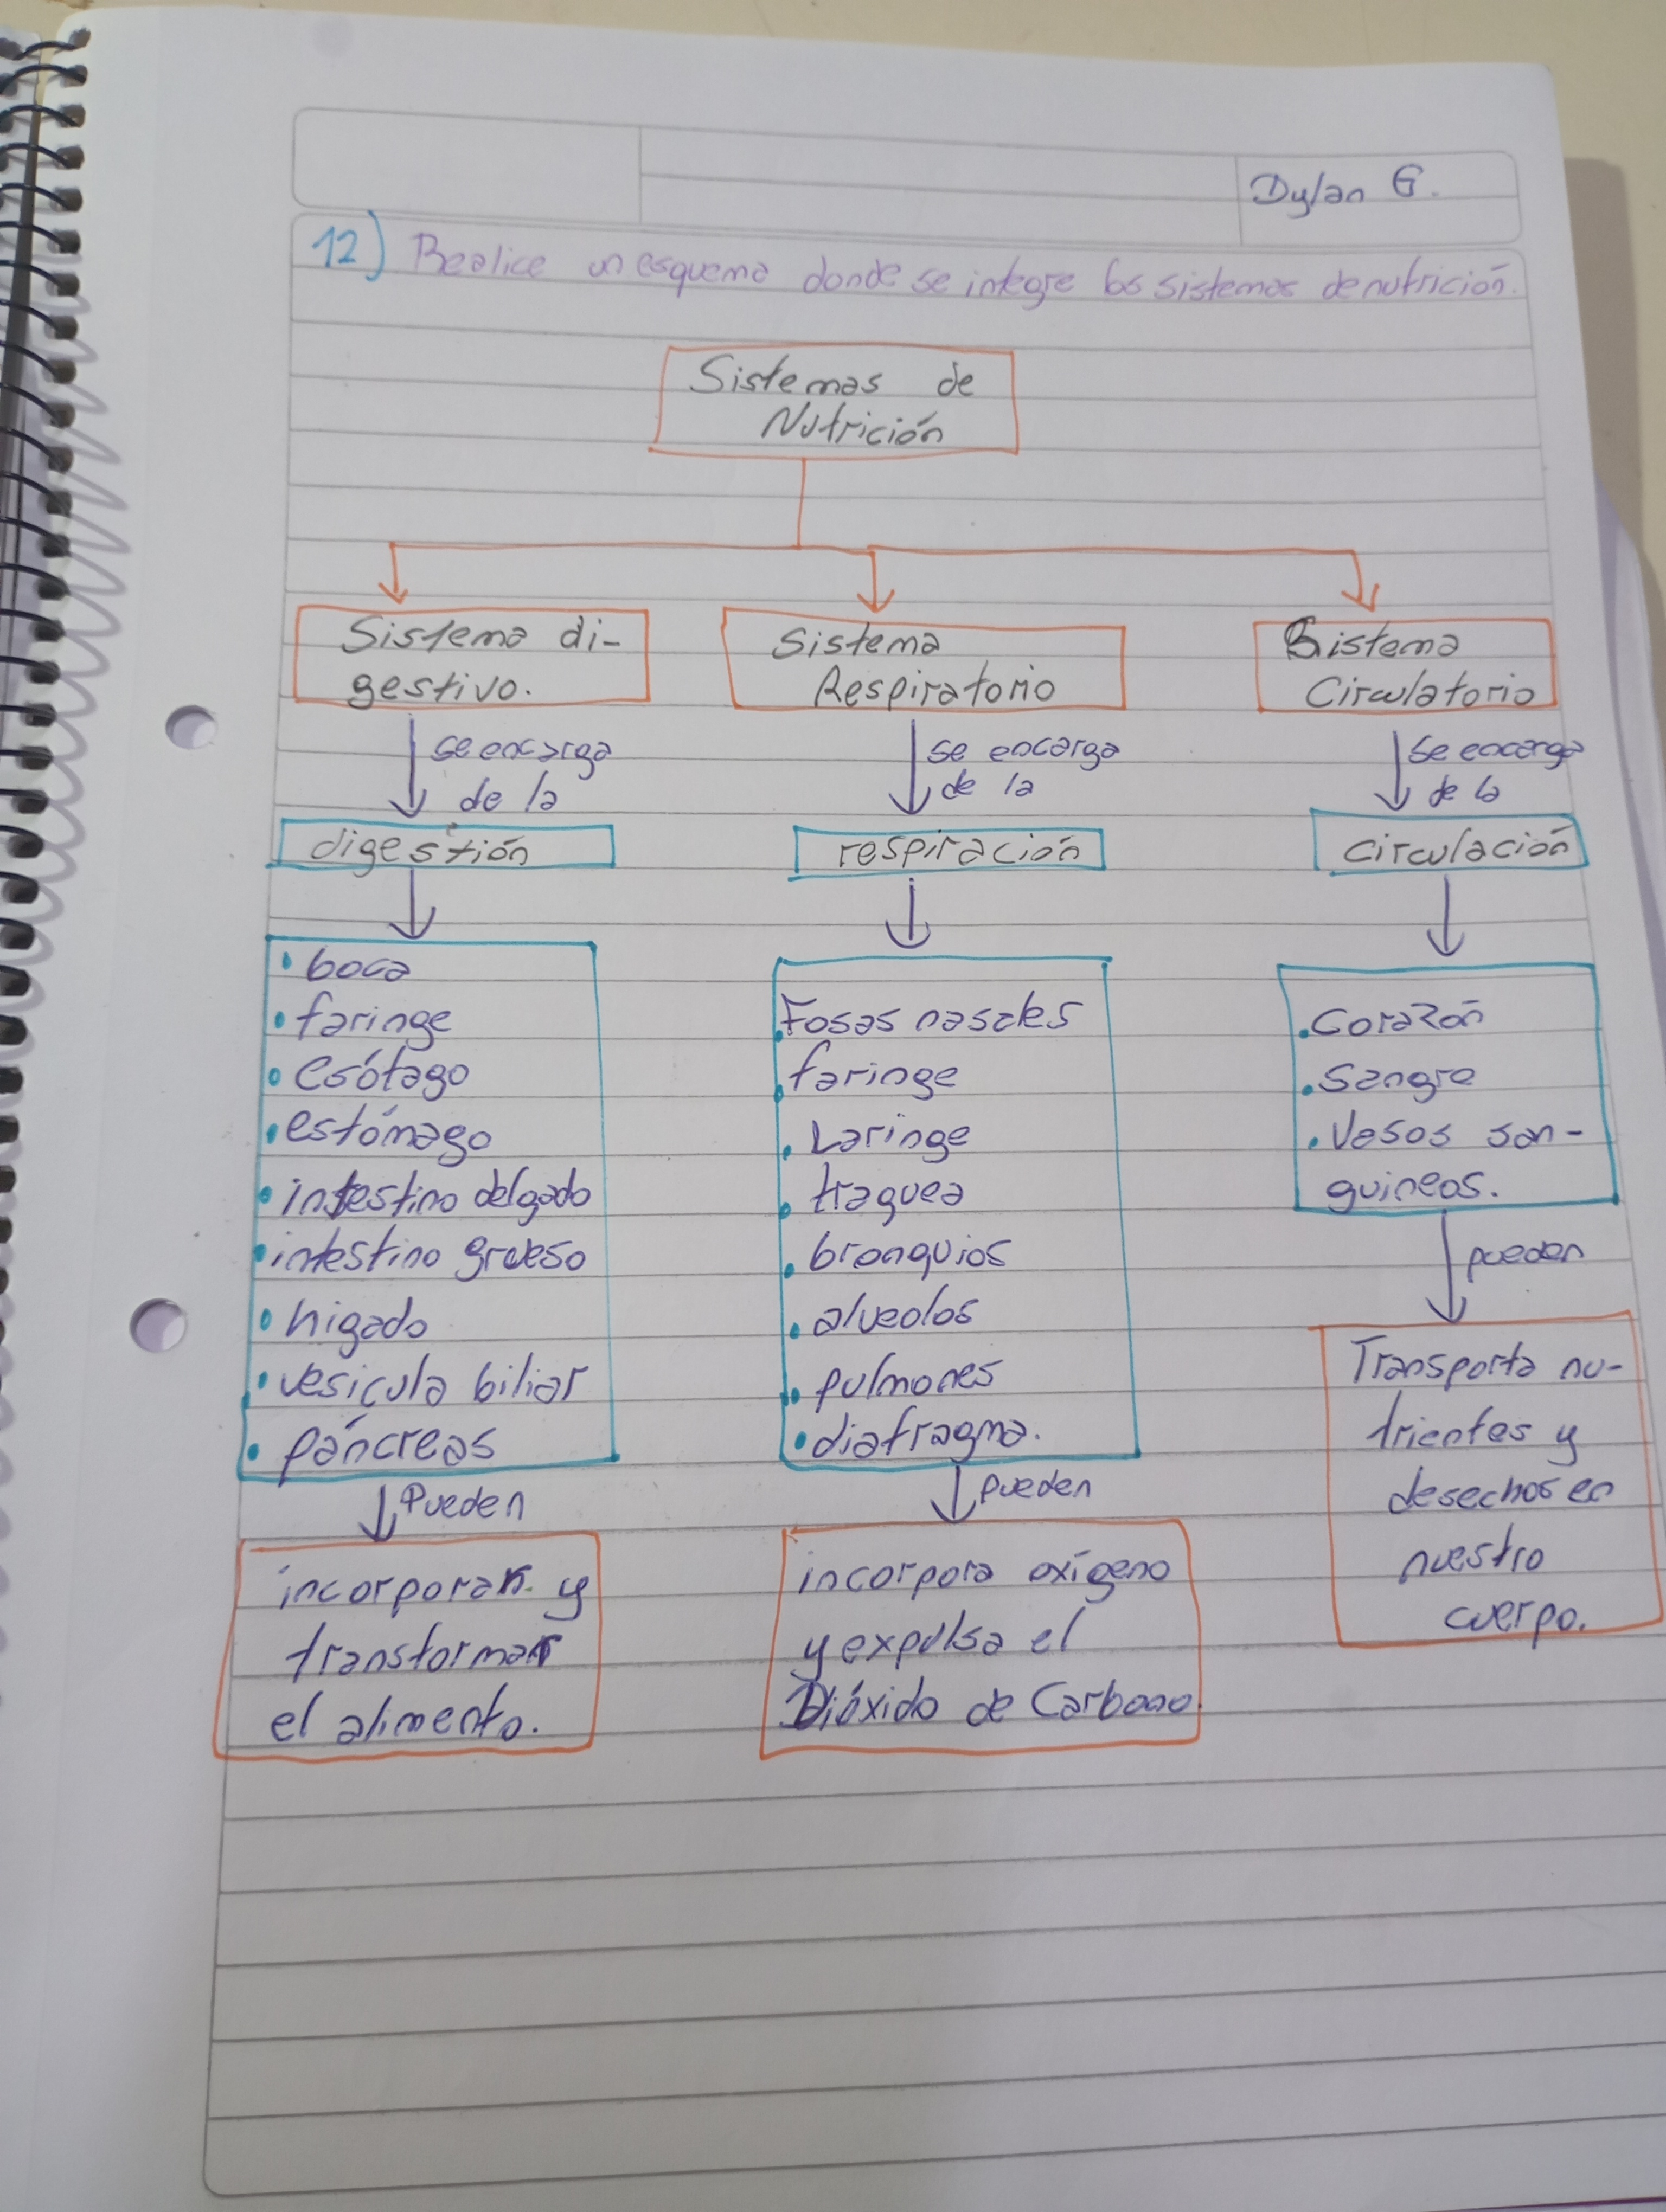 Dylan G.
12) Realice un esquema donde se integre los sistemas de nutrición.
Sistemas de
Nutrición
Sistema di-
gestivo.
se encarga
de la
digestión
• boca
• faringe
• esófago
• estómago
• intestino delgado
• intestino grueso
• higado
• vesicula biliar
• páncreas
Pueden
incorporar y
transformar
el alimento.
Sistema
Respiratorio
se encarga
de la
respiración
• Fosas nasales
• faringe
• Laringe
• traquea
• bronquios
• alveolos
• pulmones
• diafragma.
pueden
incorpora oxígeno
y expulsa el
Dióxido de Carbono.
Sistema
Circulatorio
se encarga
de la
circulación
• Corazón
• Sangre
• Vasos san-
guineos.
pueden
Transporta nu-
trientes y
desechos en
nuestro
cuerpo.